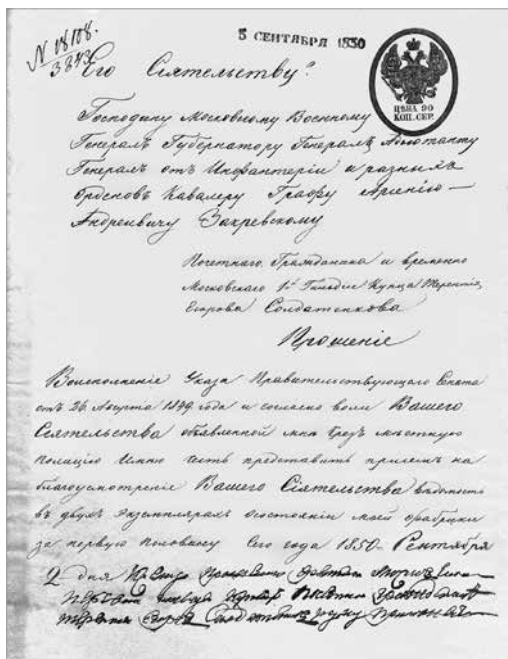 N 18108.
3843
5 СЕНТЯБРЯ 1850
ЦѢНА 90
КОП. СЕР.
Его Сіятельству.
Господину Московскому Военному
Генералъ Губернатору Генералъ Адъютанту
Генералъ отъ Инфантеріи и разныхъ
Орденовъ Кавалеру Графу Арсенію
Андреевичу Закревскому
Почетнаго Гражданина и временно
Московскаго 1й Гильдіи Купца Терентія
Егорова Солдатенкова
Прошеніе
Воисполненіе Указа Правительствующаго Сената
отъ 26 Августа 1849 года и согласно воли Вашего
Сіятельства объявленной мнѣ чрезъ мѣстную
полицію Имѣю честь представить присемъ на
благоусмотреніе Вашего Сіятельства вѣдомость
въ двухъ экземплярахъ осостояніи моей фабрики
за первую половину сего года 1850 Сентября
2 дня Къ сему прошенію
первой купецъ
Терентій Егоровъ Солдатенковъ руку приложилъ